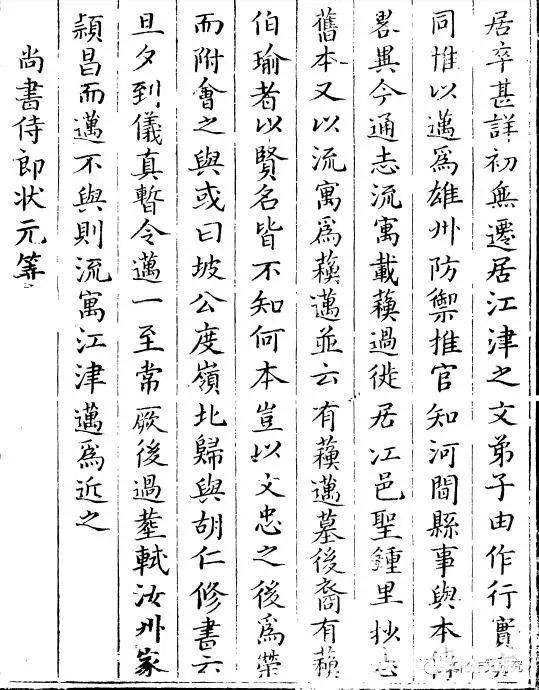 居卒甚詳初無遷居江津之文弟子由作行實
同惟以邁爲雄州防禦推官知河間縣事與本傳
畧異今通志流寓載蘓過徙居江邑聖鍾里抄志
舊本又以流寓爲蘓邁並云有蘓邁墓後裔有蘓
伯瑜者以賢名皆不知何本豈以文忠之後爲榮
而附會之與或曰坡公度嶺北歸與胡仁修書云
旦夕到儀真暫令邁一至常厥後過塟軾汝州家
潁昌而邁不與則流寓江津邁爲近之
尚書侍郎狀元等